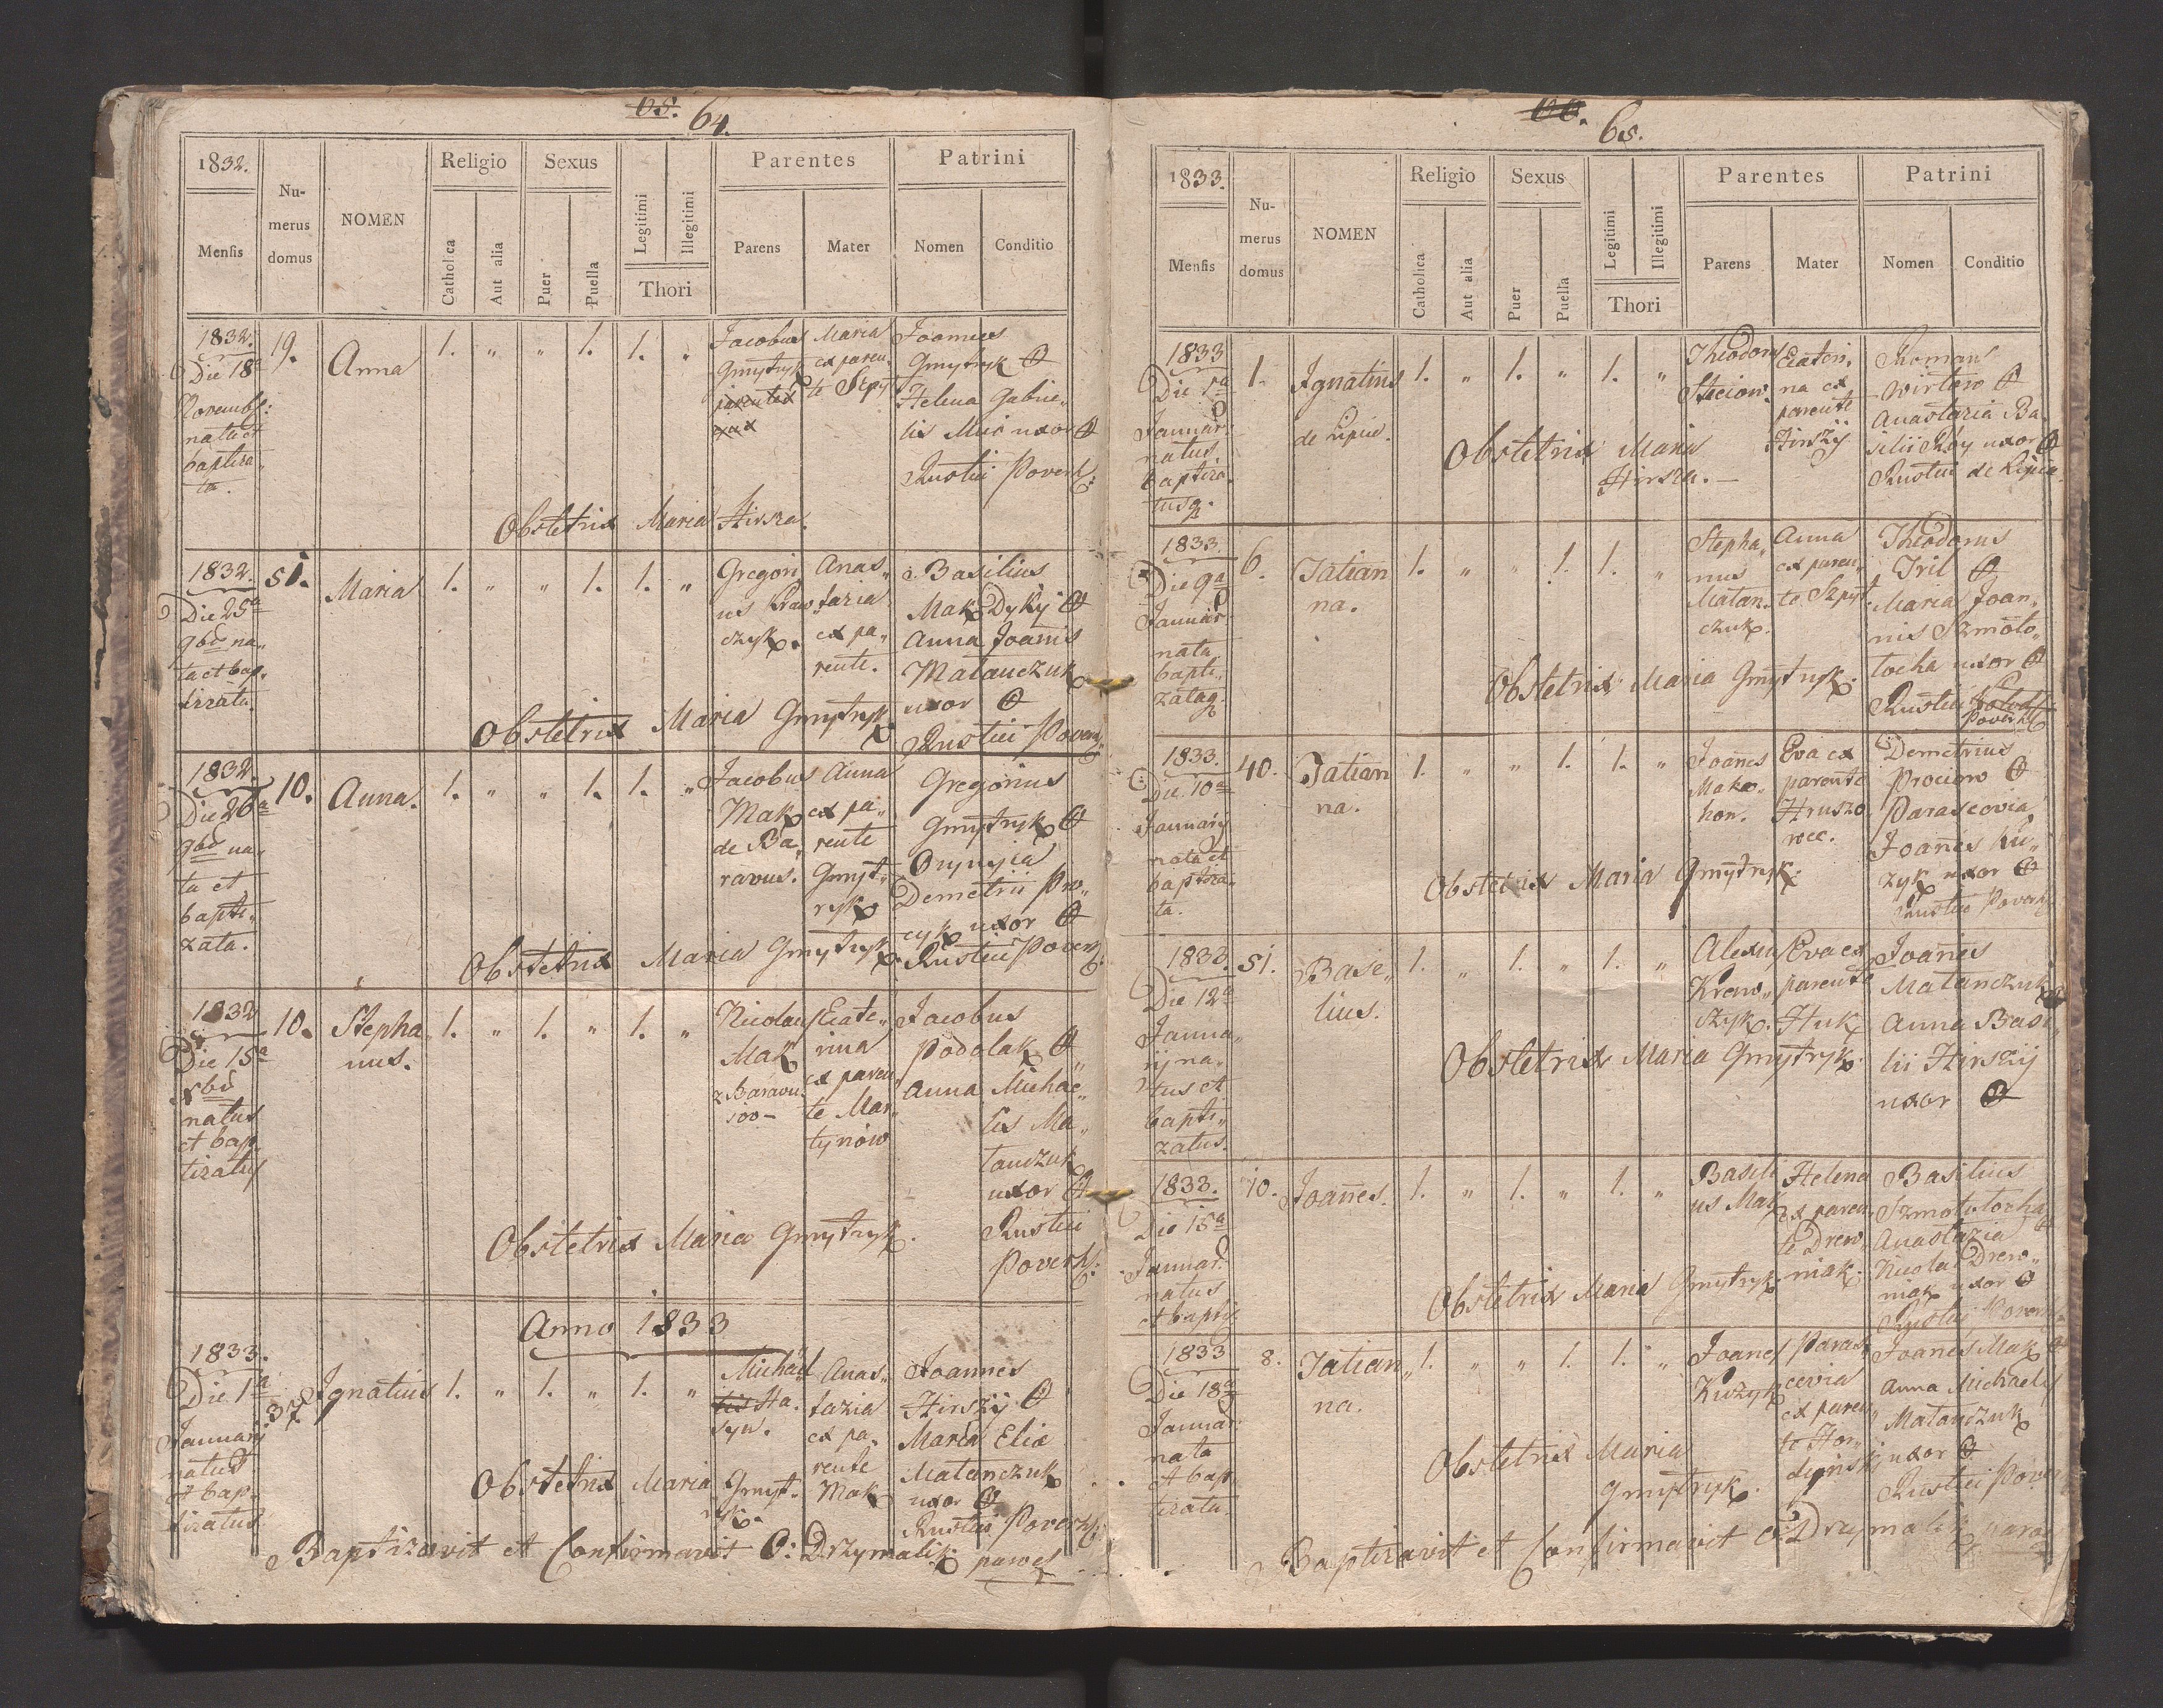 65. 64.
1832.
Nu-
merus
domus
NOMEN
Religio
Sexus
Legitimi
Illegitimi
Parentes
Patrini
Mensis
Catholica
Aut alia
Puer
Puella
Thori
Parens
Mater
Nomen
Conditio
1832.
Die 18a
Novembr:
nata et
baptiza„
ta.
19.
Anna
1. „ „ 1. 1. „
Jacobus
Gmytryk
Maria
ex paren„
te
Joannes
Gmytryk
Helena Gabrie„
lis uxor
Rustici Poverh:
Obstetrix Maria Hirsza.
1832.
Die 25a
9bris na„
ta et bap„
tizata.
51.
Maria
1. „ „ 1. 1. „
Gregori
us Kraw
czyk.
Anas„
tazia
ex pa„
rente.
Basilius
Mak Dykij
Anna Joannis
Matanczuk
uxor
Rustici Poverh:
Obstetrix Maria Gmytryk
1832.
Die 26a
9bris na„
ta et
bapti„
zata.
10.
Anna.
1. „ „ 1. 1. „
Jacobus
Mak
de Ba„
ravus.
Anna
ex pa„
rente
Gmyt„
ryk
Gregorius
Gmytryk
Demetrii Pro„
cyk uxor
Rustici Poverh:
Obstetrix Maria Gmytryk.
1832
Die 15a
xbris
natus
et bap„
tizatus
10.
Stepha„
nus.
1. „ 1. „ 1. „
Nicolaus
Mak
Ecate„
rina
ex paren„
te Mar„
tynów
Jacobus
Podolak
Anna Michae„
lis Ma„
tanczuk
uxor
Rustici
Poverh:
Obstetrix Maria Gmytryk.
Anno 1833
1833.
Die 1a
Januarij
natus
et bap„
tizatus
37
Ignatius
1. „ 1. „ 1. „
Michael
Ha„
syn.
Anas„
tazia
ex pa„
rente
Mak
Joannes
Hirszij
Maria Eliæ
Matanczuk
uxor
Rustici Poverh:
Obstetrix Maria Gmyt„
ryk.
Baptizavit et Confirmavit O: Drzymalik paroch
66. 65.
1833.
Nu-
merus
domus
NOMEN
Religio
Sexus
Legitimi
Illegitimi
Parentes
Patrini
Mensis
Catholica
Aut alia
Puer
Puella
Thori
Parens
Mater
Nomen
Conditio
1833
Die 1a
Januar:
natus,
baptiza„
tusq.
1.
Ignatius
de Lipie.
1. „ 1. „ 1. „
Theodorus
Steciow.
Ecateri„
na ex
parente
Hirszij
Thomas
Wirtow
Anastazia Ba„
silii uxor
Rustici de Lipie.
Obstetrix Maria
Hirsza.
1833.
Die 9a
Januar:
nata,
bapti„
zataq.
6.
Tatian
na.
1. „ „ 1. 1. „
Stepha„
nus
Matan„
czuk.
Anna
ex paren„
te Szpyt
Theodorus
Iril
Maria Joan„
nis Szmoto„
tocha uxor
Rustici
Poverh:
Obstetrix Maria Gmytryk.
1833.
Die 10a
Januarij
nata et
baptiza„
ta.
40.
Tatian
na.
1. „ „ 1. 1. „
Joannes
Mako„
hon.
Eva ex
parente
Hruszo
wec.
Demetrius
Prociow
Parascevia
Joannes Ku„
zyk uxor
Rustici Poverh:
Obstetrix Maria Gmytryk.
1833.
Die 12a
Janua„
rij na„
tus et
bapti„
zatus.
51.
Basi„
lius.
1. „ 1. „ 1. „
Alexius
Kraw„
czyk.
Eva ex
parente
Huk
Joannes
Matanczuk
Anna Basi„
lii Hirszij
uxor
Obstetrix Maria Gmytryk.
1833.
Die 15a
Januar:
natus
et baptiz
10.
Joannes.
1. „ 1. „ 1. „
Basili
us Mak
Helena
ex paren„
te Drew„
niak.
Basilius
Szmototocha
Anastazia
Nicolai Drew„
niak uxor
Rustici Poverh:
Obstetrix Maria Gmytryk.
1833
Die 18a
Januar:
nata
et bap„
tizata.
8.
Tatian„
na.
1. „ „ 1. 1. „
Joannes
Kuzyk
Paras„
cevia
ex paren„
te Hor„
dynski
Joannes Mak
Anna Michaelis
Matanczuk
uxor
Rustici Pover
Obstetrix Maria
Gmytryk.
Baptizavit et Confirmavit O: Drzymalik paroch